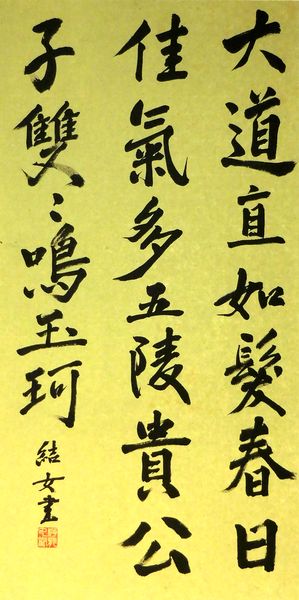 大道直如髮春日
佳氣多五陵貴公
子雙〻鳴玉珂
結女書